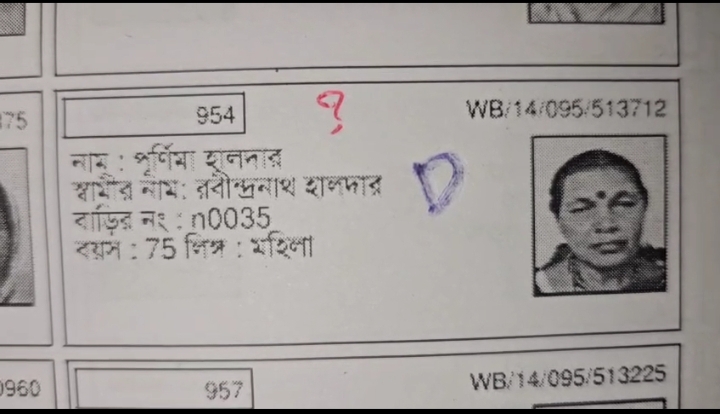 954 ? WB/14/095/513712
নাম : পূর্ণিমা হালদার
স্বামীর নাম: রবীন্দ্রনাথ হালদার
বাড়ির নং : n0035
বয়স : 75 লিঙ্গ : মহিলা
D
0960 957 WB/14/095/513225